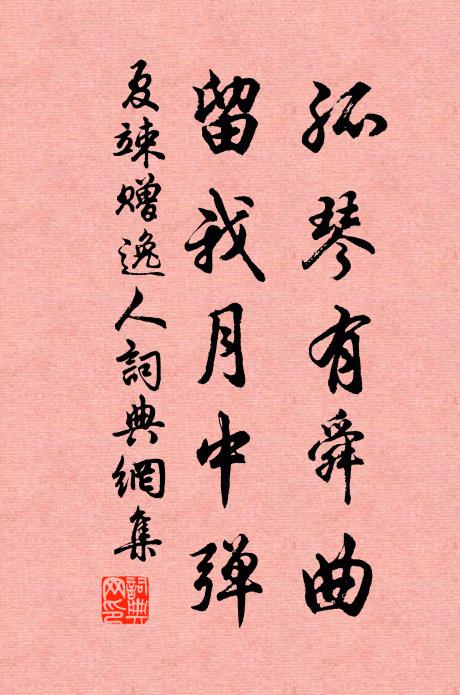 孤琴有舜曲
留我月中弹
夏竦赠逸人詞典網集
詞典网印